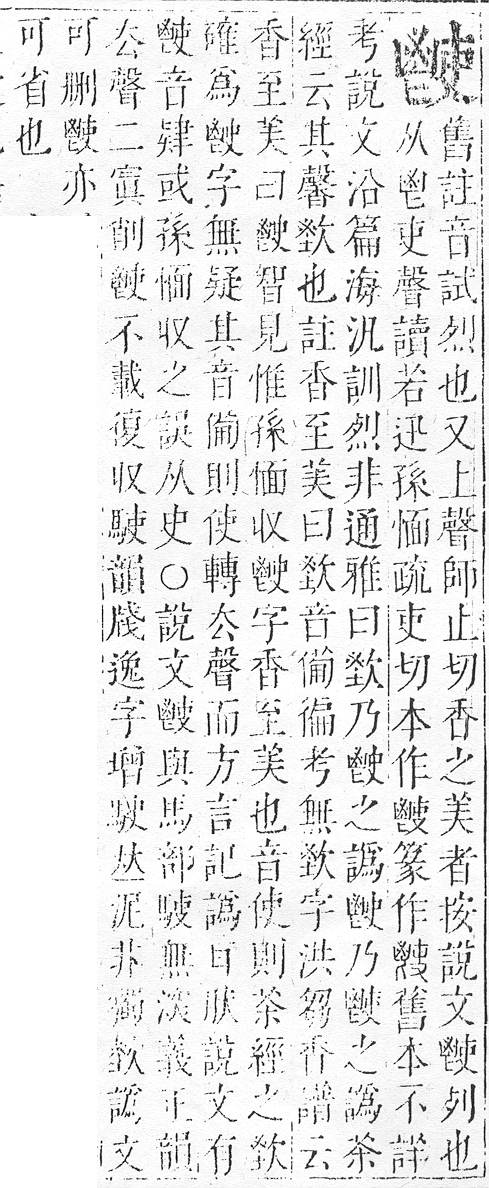 舊註音試烈也又上聲師止切香之美者按說文列也
从鬯吏聲讀若迅孫愐疏吏切本作篆作舊本不詳
考說文沿篇海汎訓烈非通雅曰乃之譌乃之譌茶
經云其馨也註香至美曰音備徧考無字洪芻香譜云
香至美曰智見惟孫愐収字香至美也音使則茶經之
確爲字無疑其音備則使轉厺聲而方言記譌耳說文有
音肄或孫愐収之誤从史○說文與馬部駛無深義正韻
厺聲二寘削不載復収駛韻牋逸字增駛𠀤泥非獨譌文
可刪亦
可省也